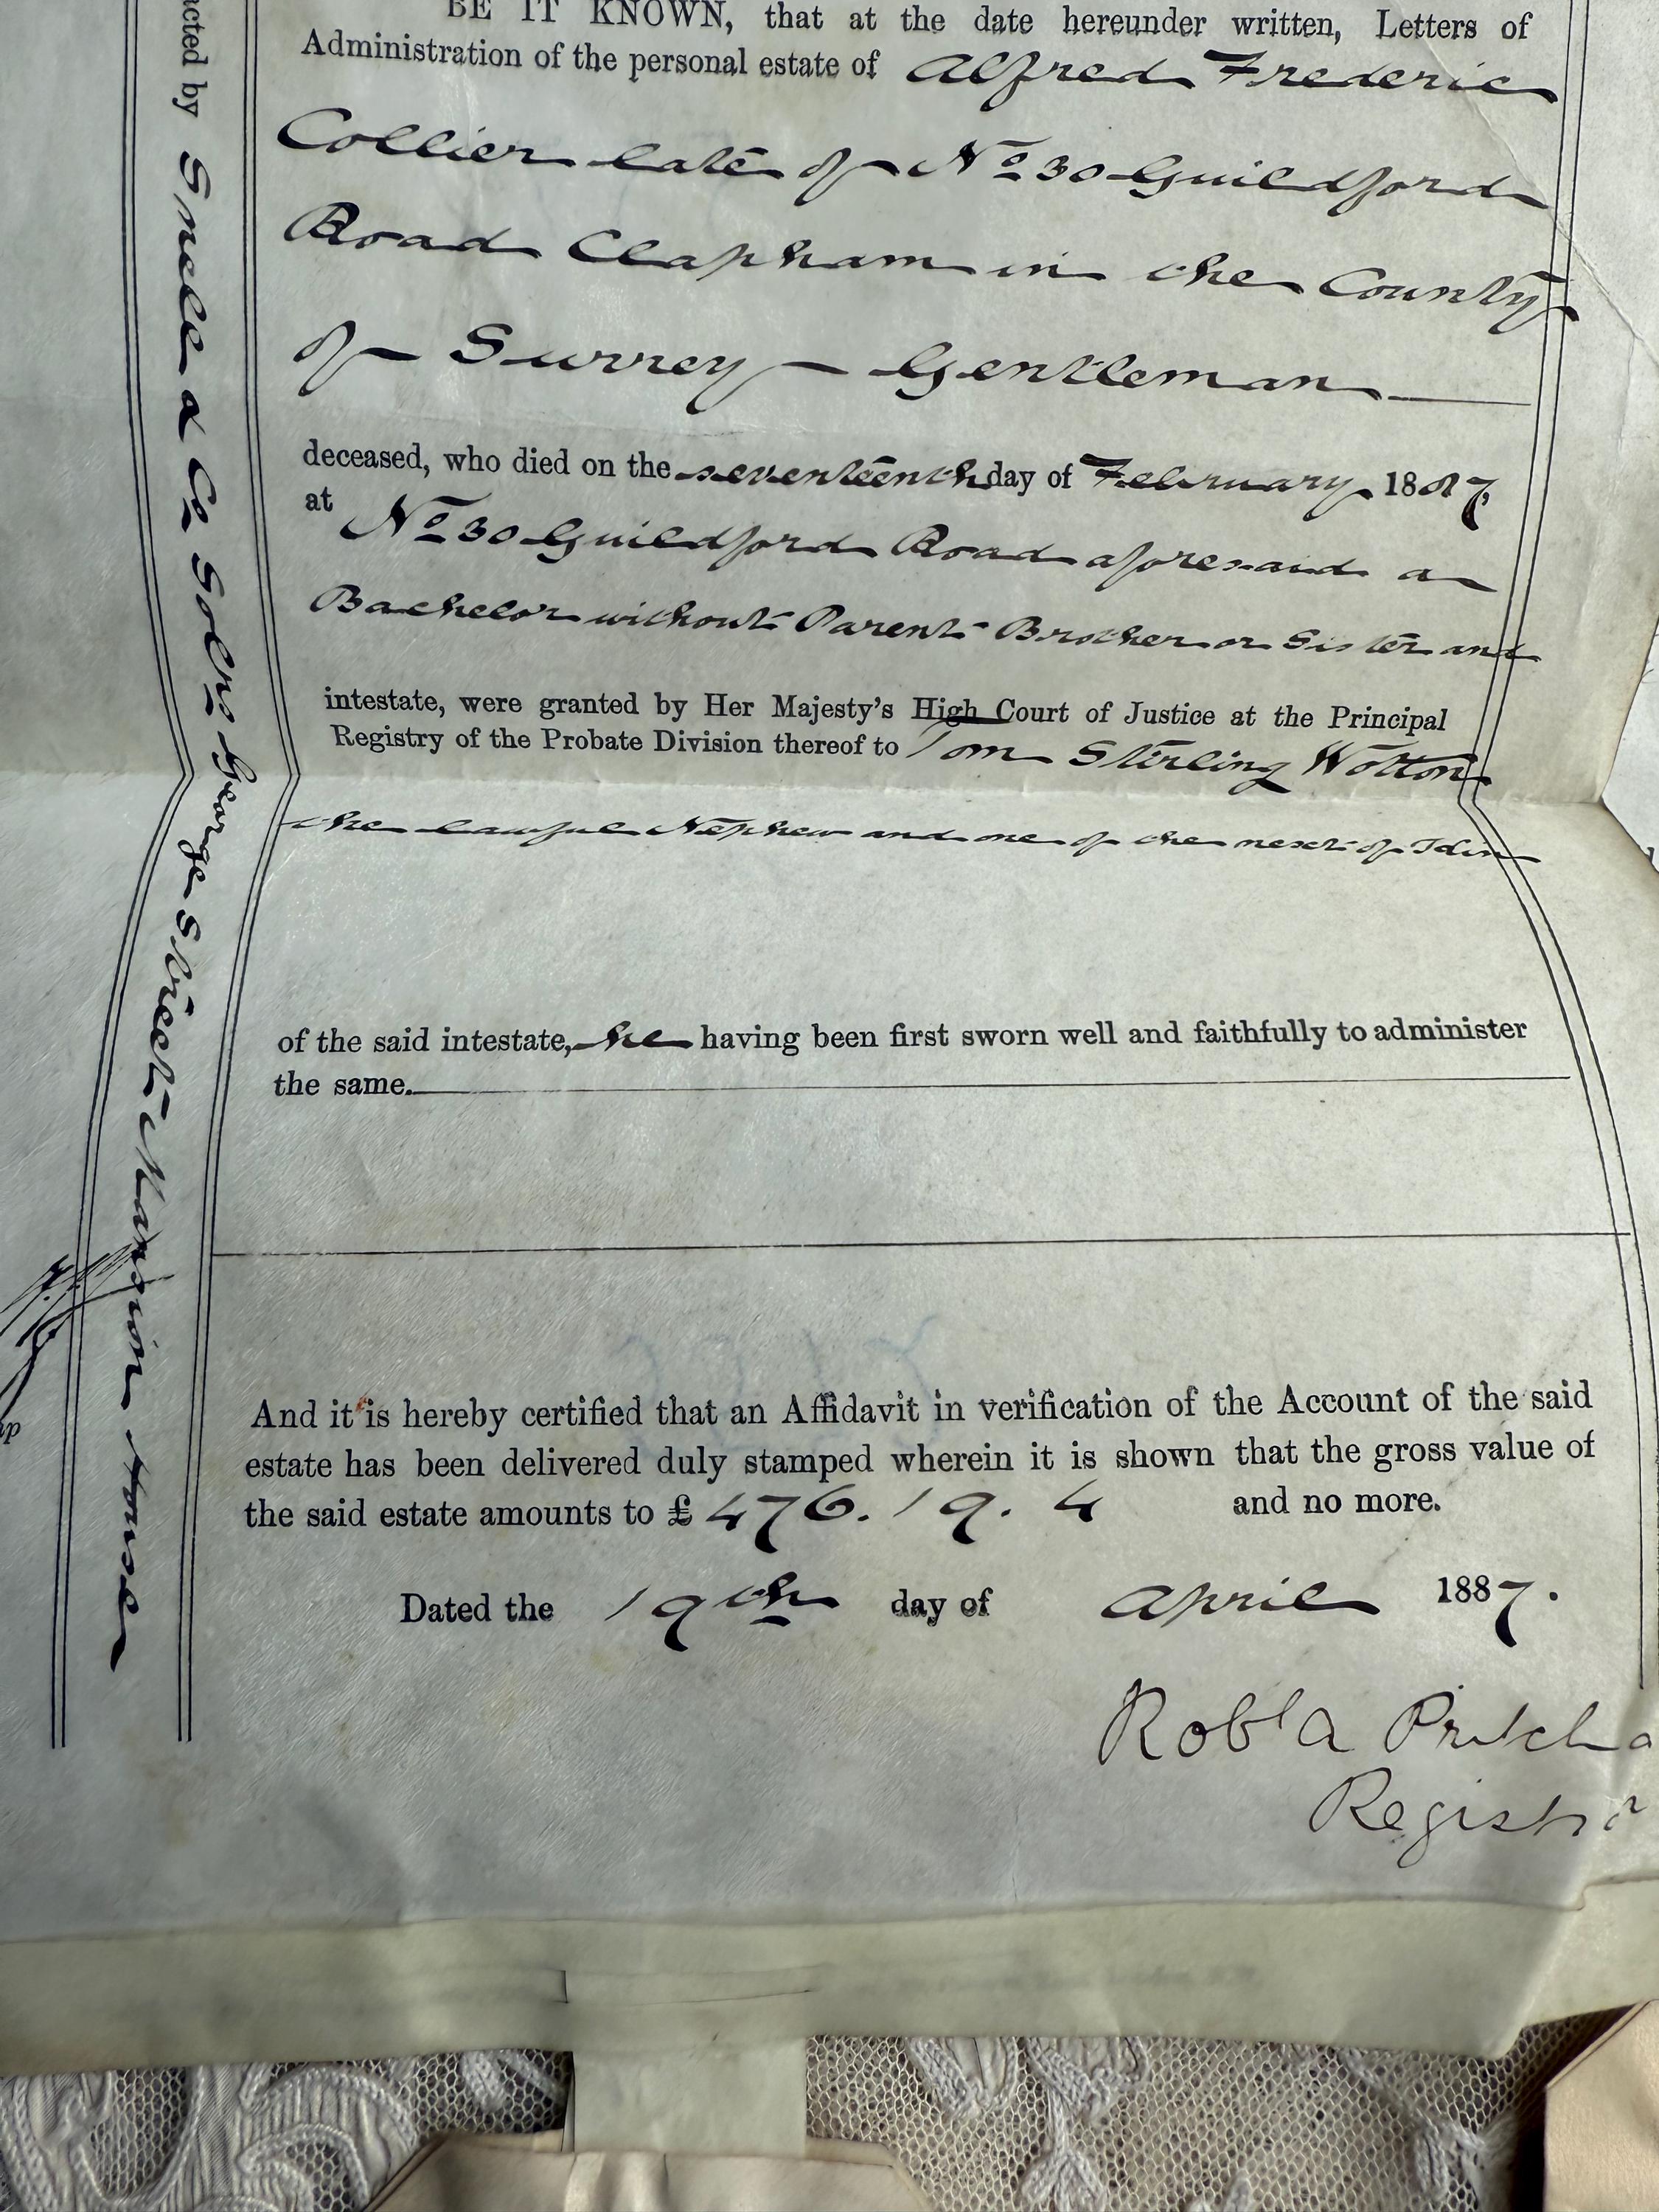 BE IT KNOWN, that at the date hereunder written, Letters of
Administration of the personal estate of Alfred Frederic
Collier late of No 30 Guildford
Road Clapham in the County
of Surrey Gentleman
deceased, who died on the seventeenth day of February 1887
at No 30 Guildford Road aforesaid a
Bachelor without Parent Brother or Sister and
intestate, were granted by Her Majesty's High Court of Justice at the Principal
Registry of the Probate Division thereof to Tom Stirling Wotton
the lawful Nephew and one of the next of Kin
of the said intestate, he having been first sworn well and faithfully to administer
the same.
And it is hereby certified that an Affidavit in verification of the Account of the said
estate has been delivered duly stamped wherein it is shown that the gross value of
the said estate amounts to £ 476. 19. 4 and no more.
Dated the 19th day of April 1887.
Robt A Pritcha
Registra
acted by Snell & Co Solrs George Street Mansion House